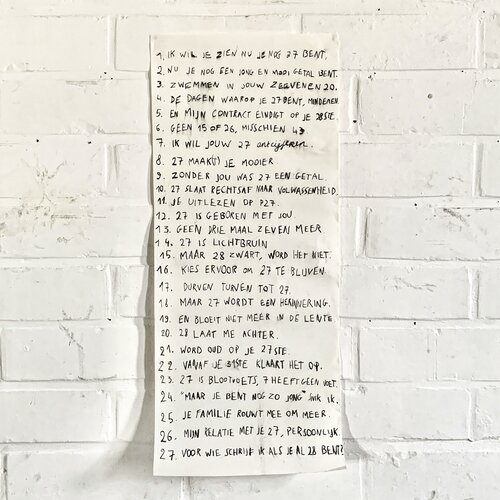 1. IK WIL JE ZIEN NU JE NOG 27 BENT,
2. NU JE NOG EEN JONG EN MOOI GETAL BENT.
3. ZWEMMEN IN JOUW ZEEVENEN 20.
4. DE DAGEN WAAROP JE 27 BENT, MINDEREN
5. EN MIJN CONTRACT EINDIGT OP JE 28STE.
6. GEEN 15 OF 26, MISSCHIEN 43
7. IK WIL JOUW 27 ontcijferen.
8. 27 MAAK(T) JE MOOIER.
9. ZONDER JOU WAS 27 EEN GETAL.
10. 27 SLAAT RECHTSAF NAAR VOLWASSENHEID.
11. JE UITLEZEN OP P27.
12. 27 IS GEBOREN MET JOU
13. GEEN DRIE MAAL ZEVEN MEER.
14. 27 IS LICHTBRUIN
15. MAAR 28 ZWART, WORD HET NIET.
16. KIES ERVOOR OM 27 TE BLIJVEN.
17. DURVEN TURVEN TOT 27.
18. MAAR 27 WORDT EEN HERINNERING.
19. EN BLOEIT NIET MEER IN DE LENTE
20. 28 LAAT ME ACHTER.
21. WORD OUD OP JE 27STE.
22. VANAF JE 31STE KLAART HET OP.
23. 27 IS BLOOTVOETS, 7 HEEFT GEEN VOET.
24. "MAAR JE BENT NOG ZO JONG" IK.
25. JE FAMILIE ROUWT MEE OM MEER.
26. MIJN RELATIE MET JE 27, PERSOONLIJK.
27. VOOR WIE SCHRIJF IK ALS JE AL 28 BENT?